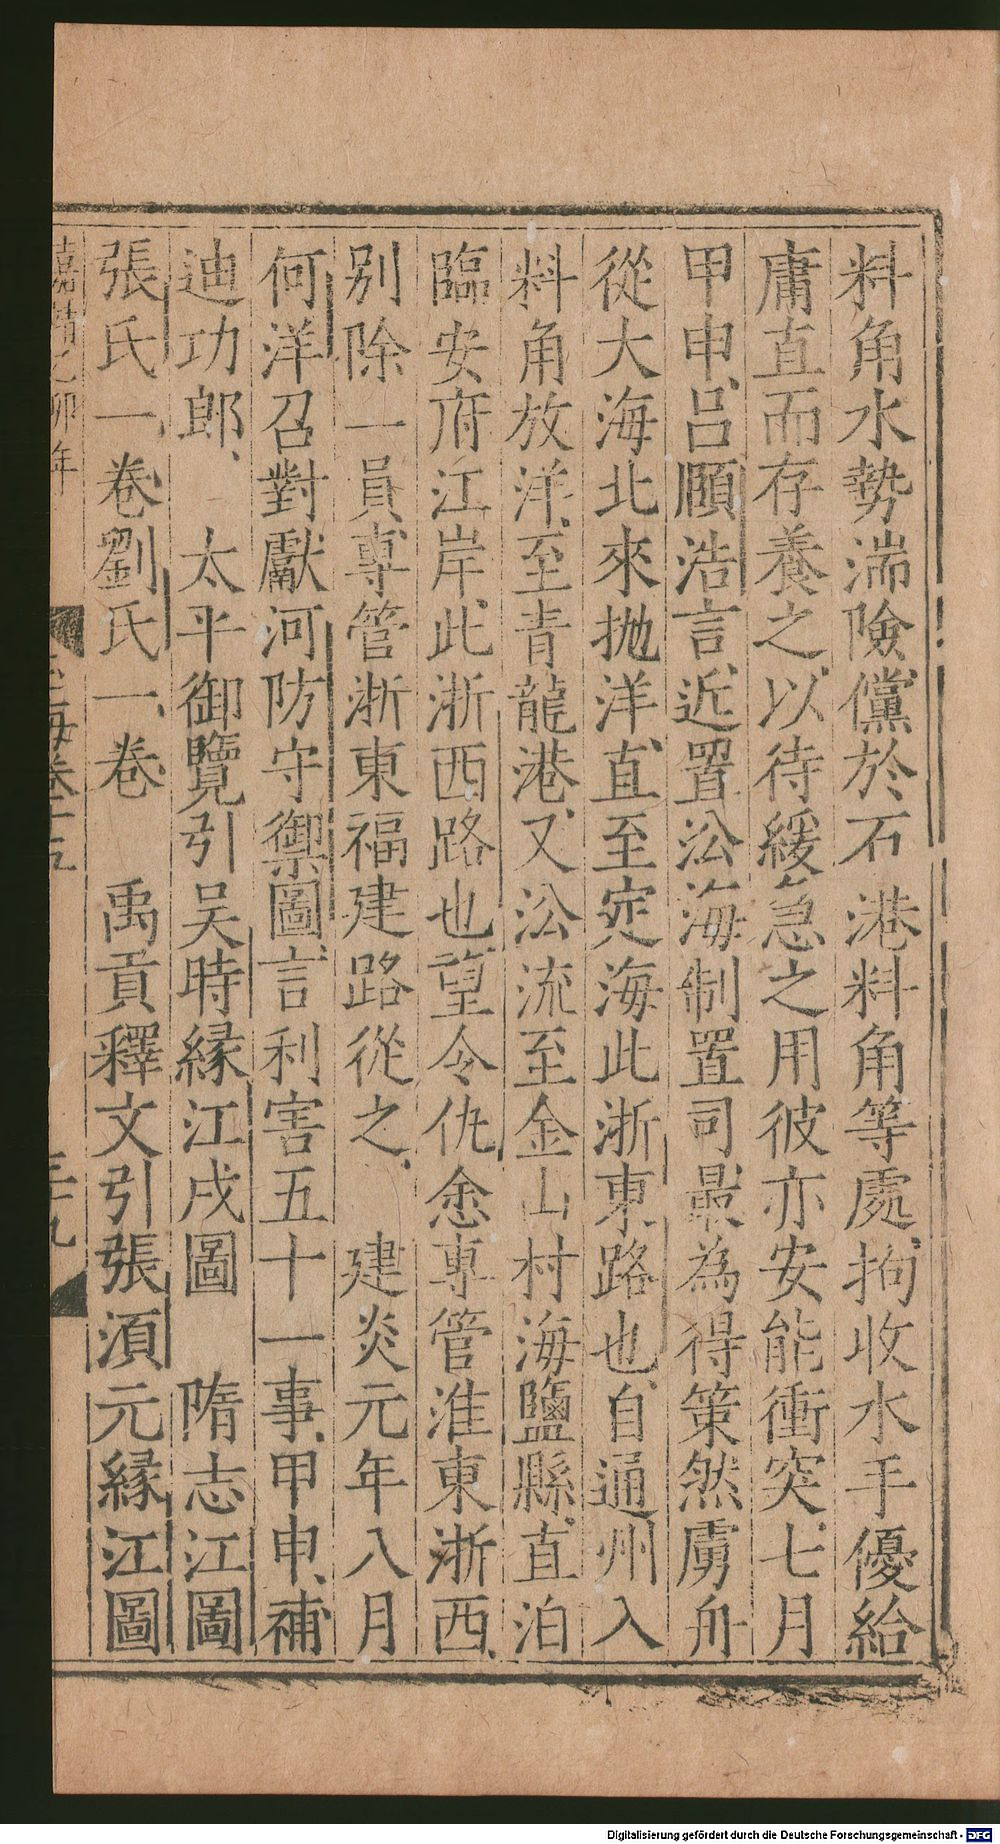 料角水勢湍險儻於石港料角等處拘收水手優給
庸直而存養之以待緩急之用彼亦安能衝突七月
甲申呂頤浩言近置㳂海制置司最為得策然虜舟
從大海北來拋洋直至㝎海此浙東路也自通州入
料角放洋至青龍港又㳂流至金山村海鹽縣直泊
臨安府江岸此浙西路也望令仇悆專管淮東浙西
別除一員專管浙東福建路從之　建炎元年八月
何洋召對獻河防守禦圖言利害五十一事甲申補
迪功郎　太平御覽引吳時緣江戍圖　隋志江圖
張氏一卷劉氏一卷　禹貢釋文引張湏元緣江圖
嘉靖乙卯年
海卷十五
三十九
Digitalisierung gefördert durch die Deutsche Forschungsgemeinschaft - DFG